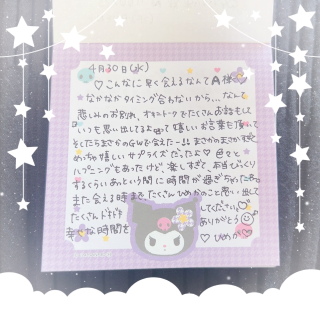 4月30日(水)
♡こんなに早く会えるなんてA様
なかなかタイミング合わないから…なんて
悲しみのお別れ、オモトークでたくさんお話もして
いつも思い出してるよ 嬉しいお言葉も頂いて
そしたらまさかのGWで会えたー!! まさかのまさかすぎて
めっちゃ嬉しいサプライズだったよ♡ 色々と
ハプニングもあったけど、楽しすぎて、本当びっくり
するくらいあっという間に時間が過ぎちゃったね
また会える時までたくさんひめかのこと思い出して
たくさんドキドキしてください
幸せな時間をありがとう
♡ひめか♡